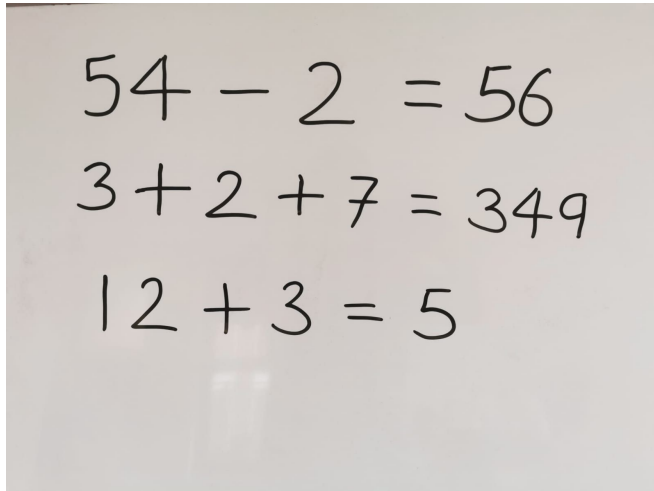 54 - 2 = 56
3 + 2 + 7 = 349
12 + 3 = 5